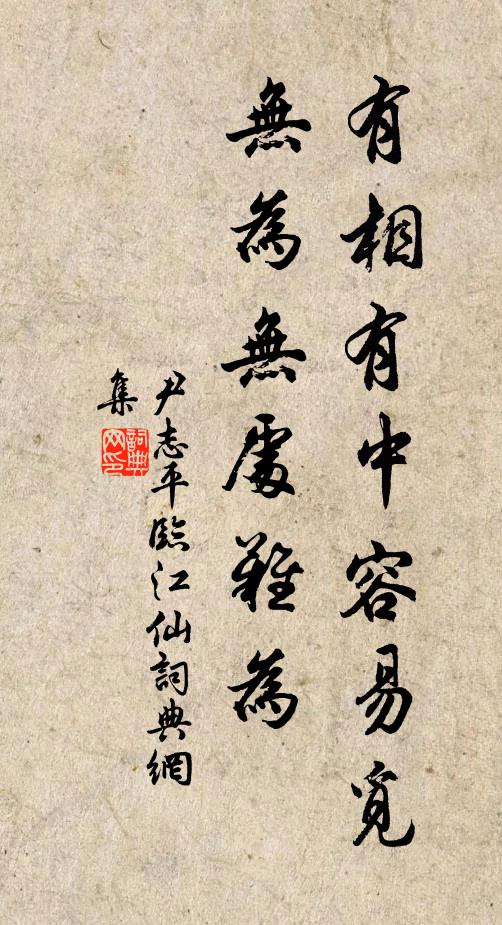 有相有中容易覓
無為無處難為
尹志平臨江仙詞典網
集
詞典
网印